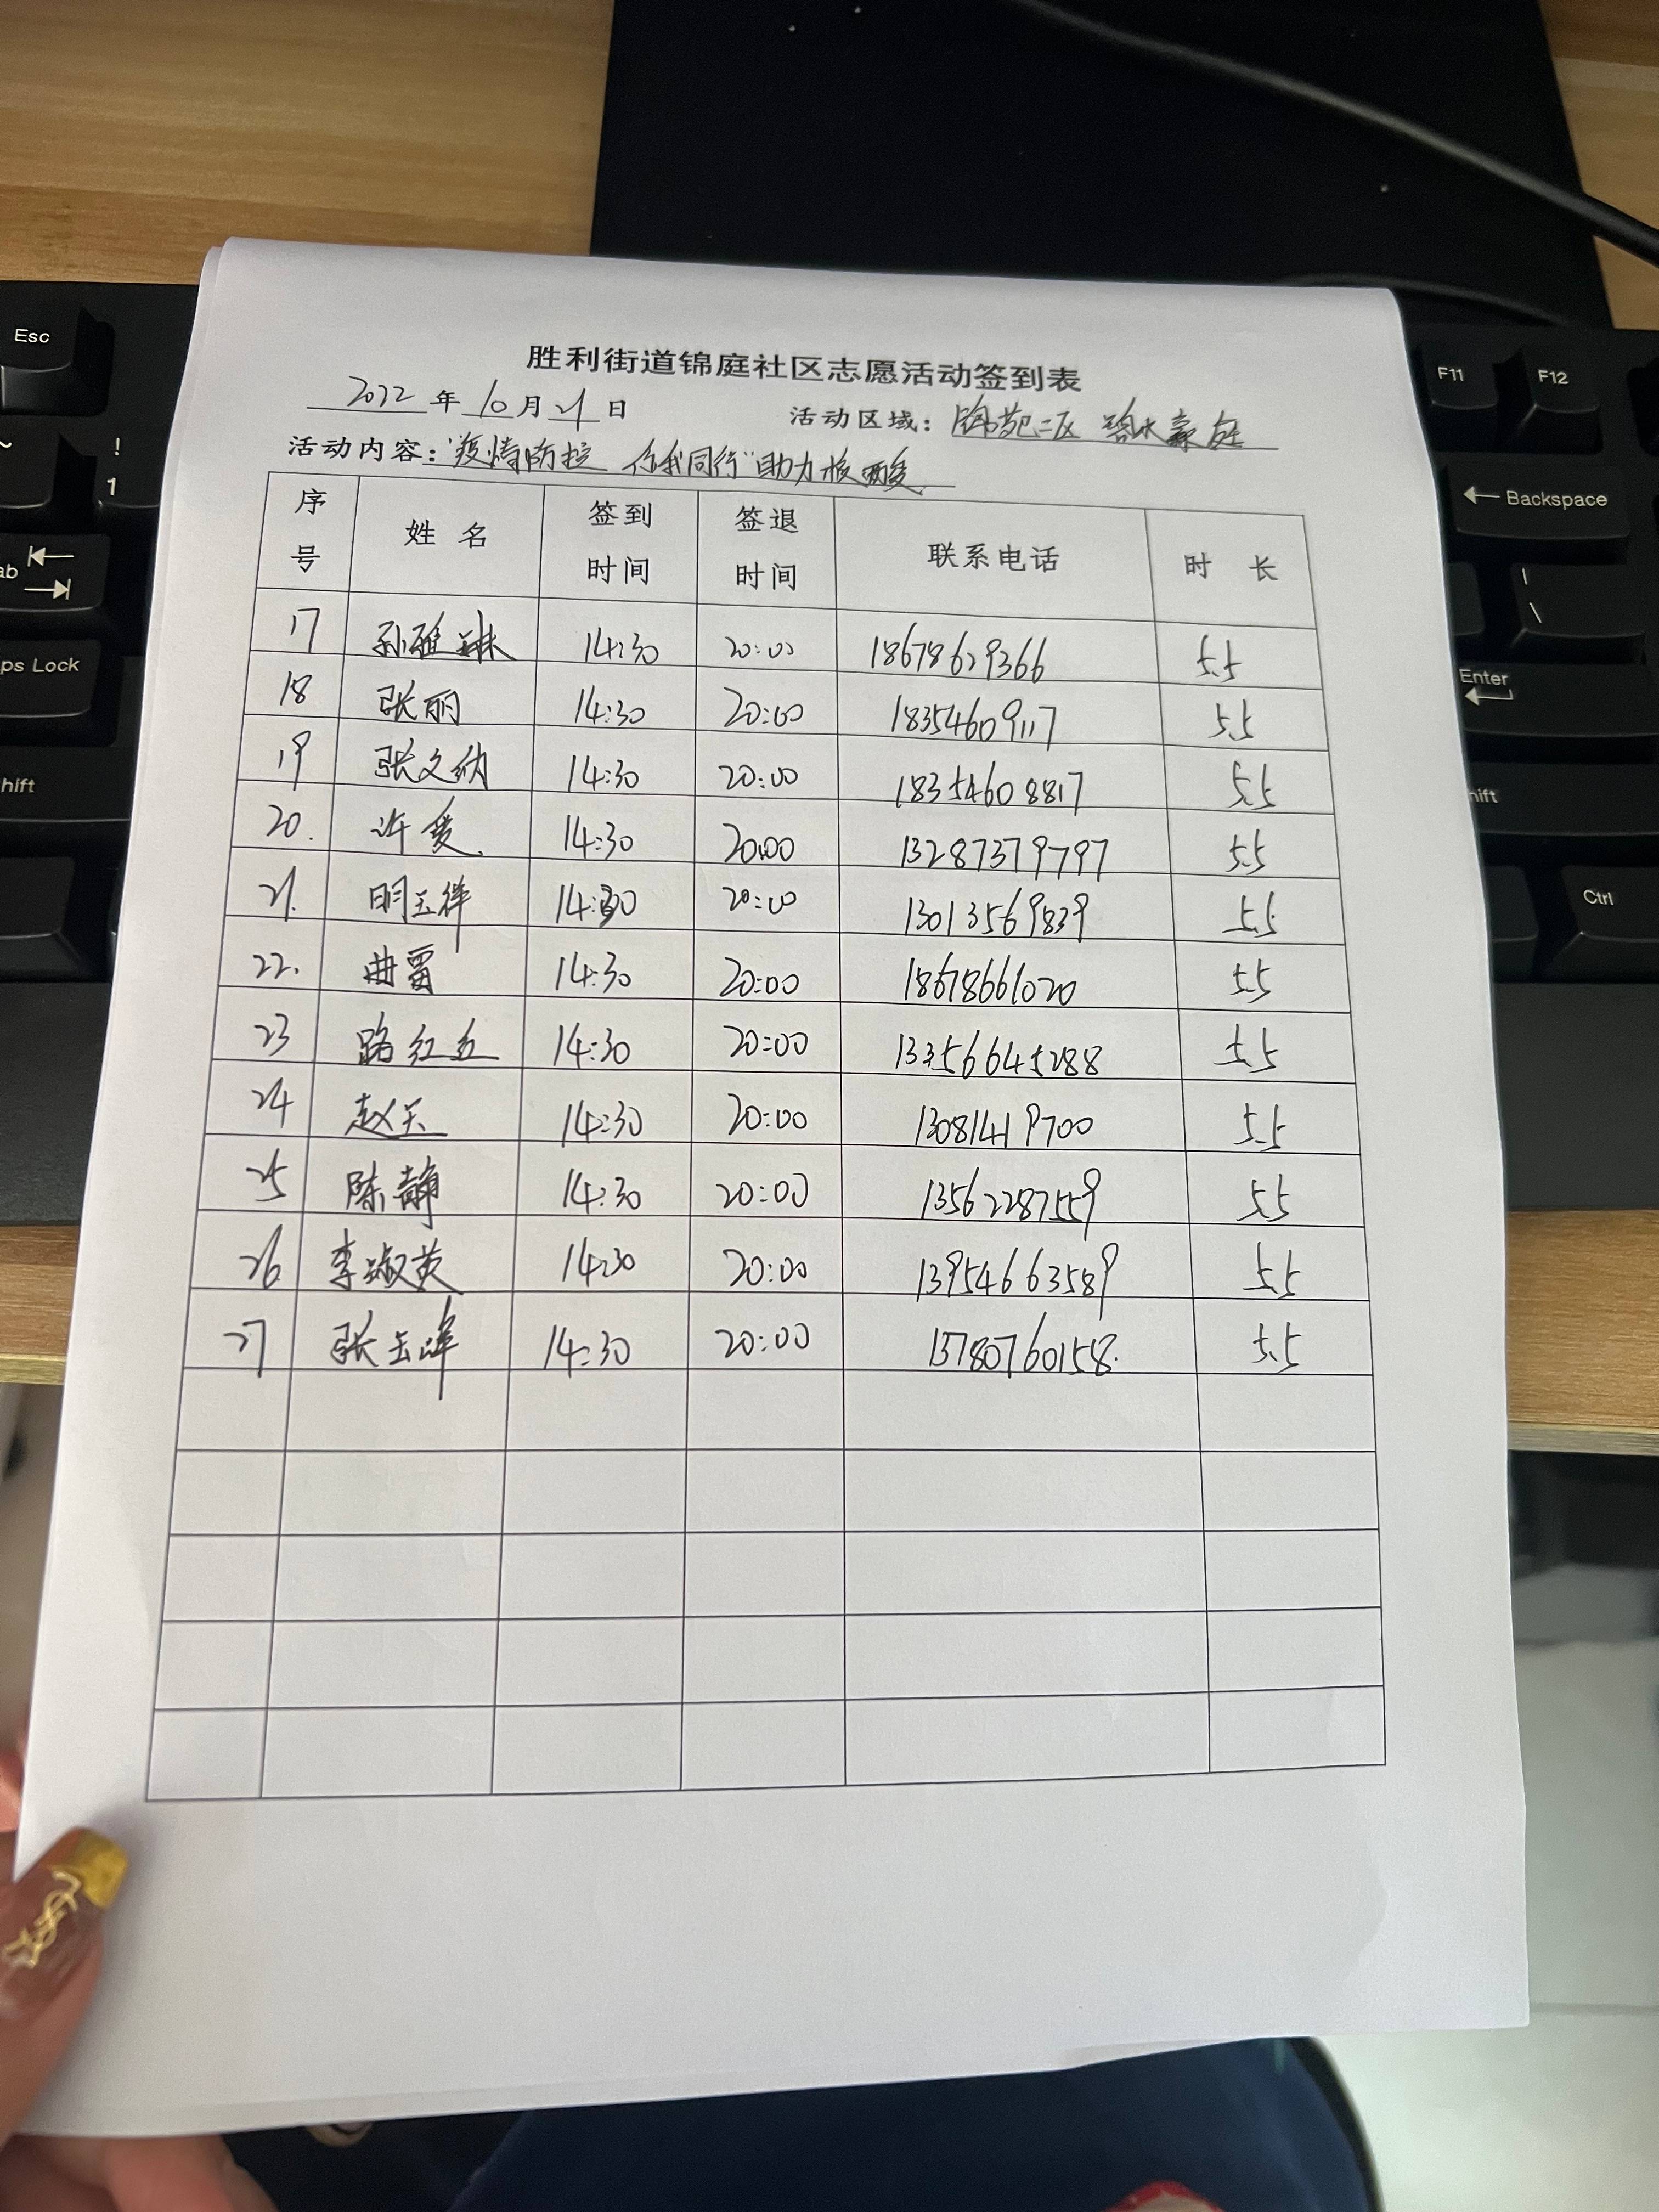 胜利街道锦庭社区志愿活动签到表
2022年10月21日 活动区域：锦苑二区 豪庭
活动内容："疫情防控 你我同行"助力核酸
序号 姓名 签到时间 签退时间 联系电话 时长
17 孙雅琳 14:30 20:00 18678629366 5.5
18 张丽 14:30 20:00 18354609117 5.5
19 张文纳 14:30 20:00 18354608817 5.5
20. 许爱 14:30 20:00 13287379797 5.5
21. 明玉祥 14:30 20:00 13013569839 5.5
22. 曲雷 14:30 20:00 18678661020 5.5
23 路红 14:30 20:00 13356645288 5.5
24 赵 14:30 20:00 13081419700 5.5
25 陈静 14:30 20:00 13562287559 5.5
26 李淑英 14:30 20:00 13954663589 5.5
27 张玉峰 14:30 20:00 15780760158. 5.5
Esc
F11
F12
~
!
1
← Backspace
ab
|
\
ps Lock
Enter
hift
hift
Ctrl